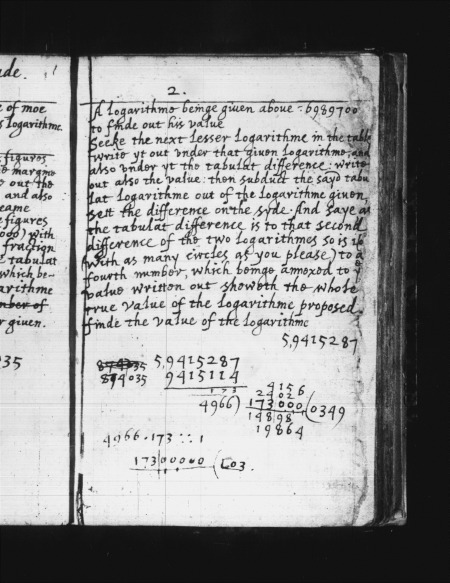 ade.
e of moe
s Logarithme.
figures
e margine
e out the
and also
eame
e figures
000) with
fraction
e tabulat
which be-
arithme
nber of
r given.
035
2.
A Logarithme beinge given above . 6989700
to finde out his value
Seeke the next lesser Logarithme in the table
write yt out vnder that given Logarithme, and
also vnder yt the tabulat difference: write
out also the value: then subduct the sayd tabu
lat Logarithme out of the Logarithme given,
sett the difference on the syde. And saye as
the tabulat difference is to that second
difference of the two Logarithmes so is 10
(with as many circles as you please) to a
fourth number, which beinge annexed to y
value written out showeth the whole
true value of the Logarithme proposed.
finde the value of the Logarithme
5,9415287
874035 5,9415287
874035 9415114
173
4156
24026
4966) 173000 (0349
14898
19864
4966.173 :: 1
17300000 (Lo3.